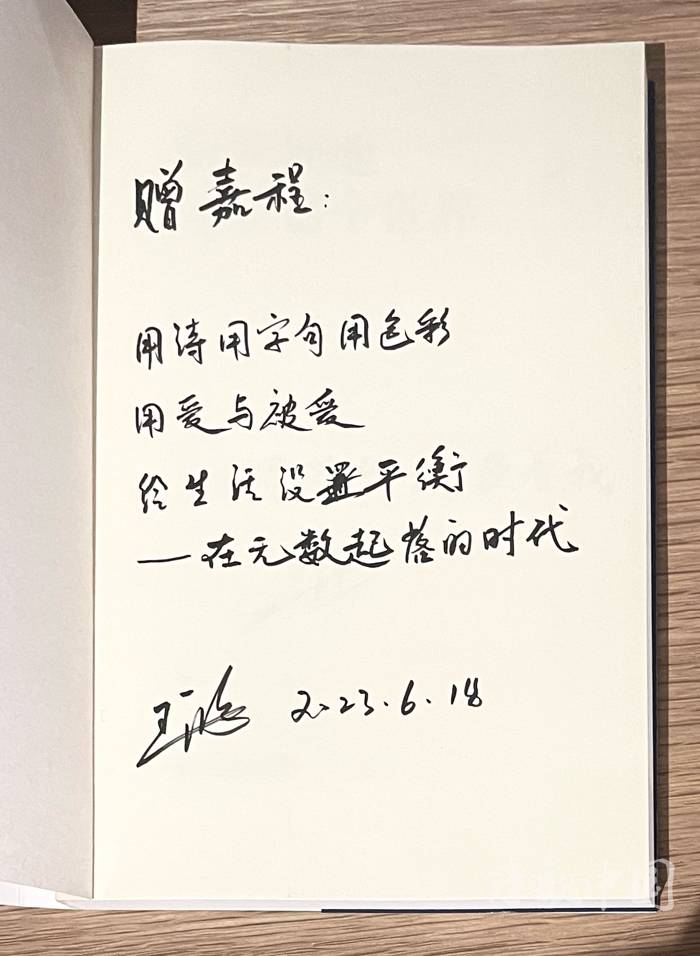 赠嘉程：
用诗用字句用色彩
用爱与被爱
给生活设置平衡
——在无数起落的时代
王 2023.6.18
中国